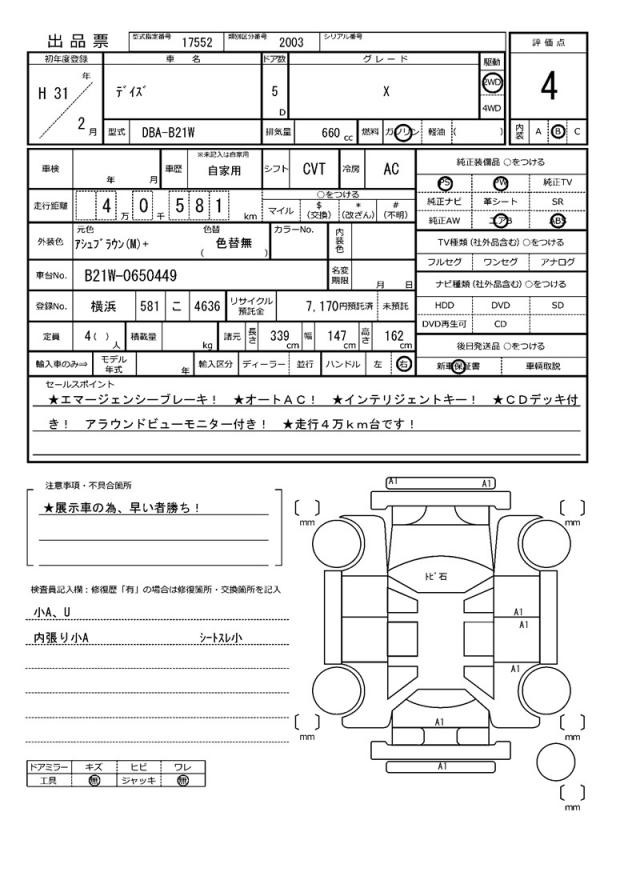 出品票 型式指定番号 17552 類別区分番号 2003 シリアル番号
評価点
4
内装 A B C
初年度登録 車名 ドア数 グレード 駆動
H 31 年 2 月
ﾃﾞｲｽﾞ 5 D X 2WD
4WD
型式 DBA-B21W 排気量 660 cc 燃料 ガソリン 軽油 ( )
車検 年 月 車歴 ※未記入は自家用 自家用 シフト CVT 冷房 AC
走行距離 4 万 0 千 5 8 1 km ○をつける
マイル $ (交換) * (改ざん) # (不明)
外装色 元色 ｱｼｭﾌﾞﾗｳﾝ(M)+ 色替 ( 色替無 ) カラーNo. 内装色
車台No. B21W-0650449 名変期限 月 日
登録No. 横浜 581 こ 4636 リサイクル預託金 7,170円預託済 未預託
定員 4( ) 人 積載量 kg 諸元 長さ 339 cm 幅 147 cm 高さ 162 cm
輸入車のみ⇒ モデル年式 年 輸入区分 ディーラー 並行 ハンドル 左 右
純正装備品 ○をつける
PS PW 純正TV
純正ナビ 革シート SR
純正AW エアB ABS
TV種類 (社外品含む) ○をつける
フルセグ ワンセグ アナログ
ナビ種類 (社外品含む) ○をつける
HDD DVD SD
DVD再生可 CD
後日発送品 ○をつける
新車保証書 車輌取説
セールスポイント
★エマージェンシーブレーキ！ ★オートＡＣ！ ★インテリジェントキー！ ★ＣＤデッキ付
き！ アラウンドビューモニター付き！ ★走行４万ｋｍ台です！
注意事項・不具合箇所
★展示車の為、早い者勝ち！
検査員記入欄：修復歴「有」の場合は修復箇所・交換箇所を記入
小A、U
内張り小A ｼｰﾄｽﾚ小
ドアミラー キズ ヒビ ワレ
工具 無 ジャッキ 無
A1 A1
mm mm
ﾄﾋﾞ石
A1
A1
A1
A1
mm mm
A1
mm